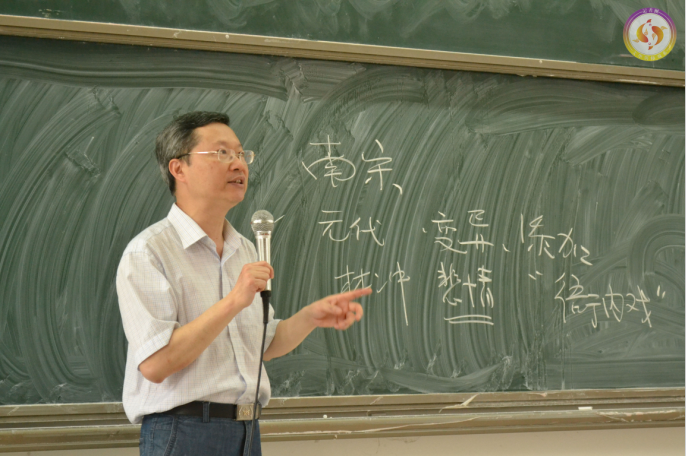 南宋、
元代 变异、添加
林冲 悲情 "衙内戏"